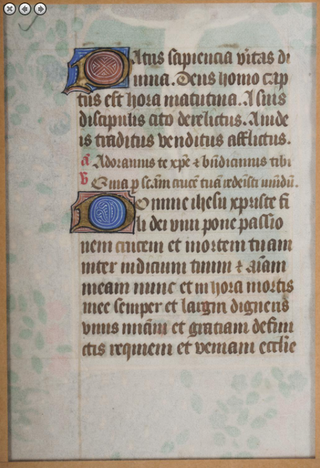 Patris sapiencia vitas di
uina. Deus homo cap
tus est hora matutina. A suis
discipulis cito derelictus. A iude
is traditus venditus afflictus.
a Adoramus te xpe & bndicimus tibi
v Quia p scam crucem tuã redemisti mũdũ.
Domine ihesu xpriste fi
li dei viui pone passio
nem crucem et mortem tuam
inter iudicium tuum & aiam
meam nunc et in hora mortis
mee semper et largiri digneris
viuis miam et gratiam defun
ctis requiem et veniam ecclie